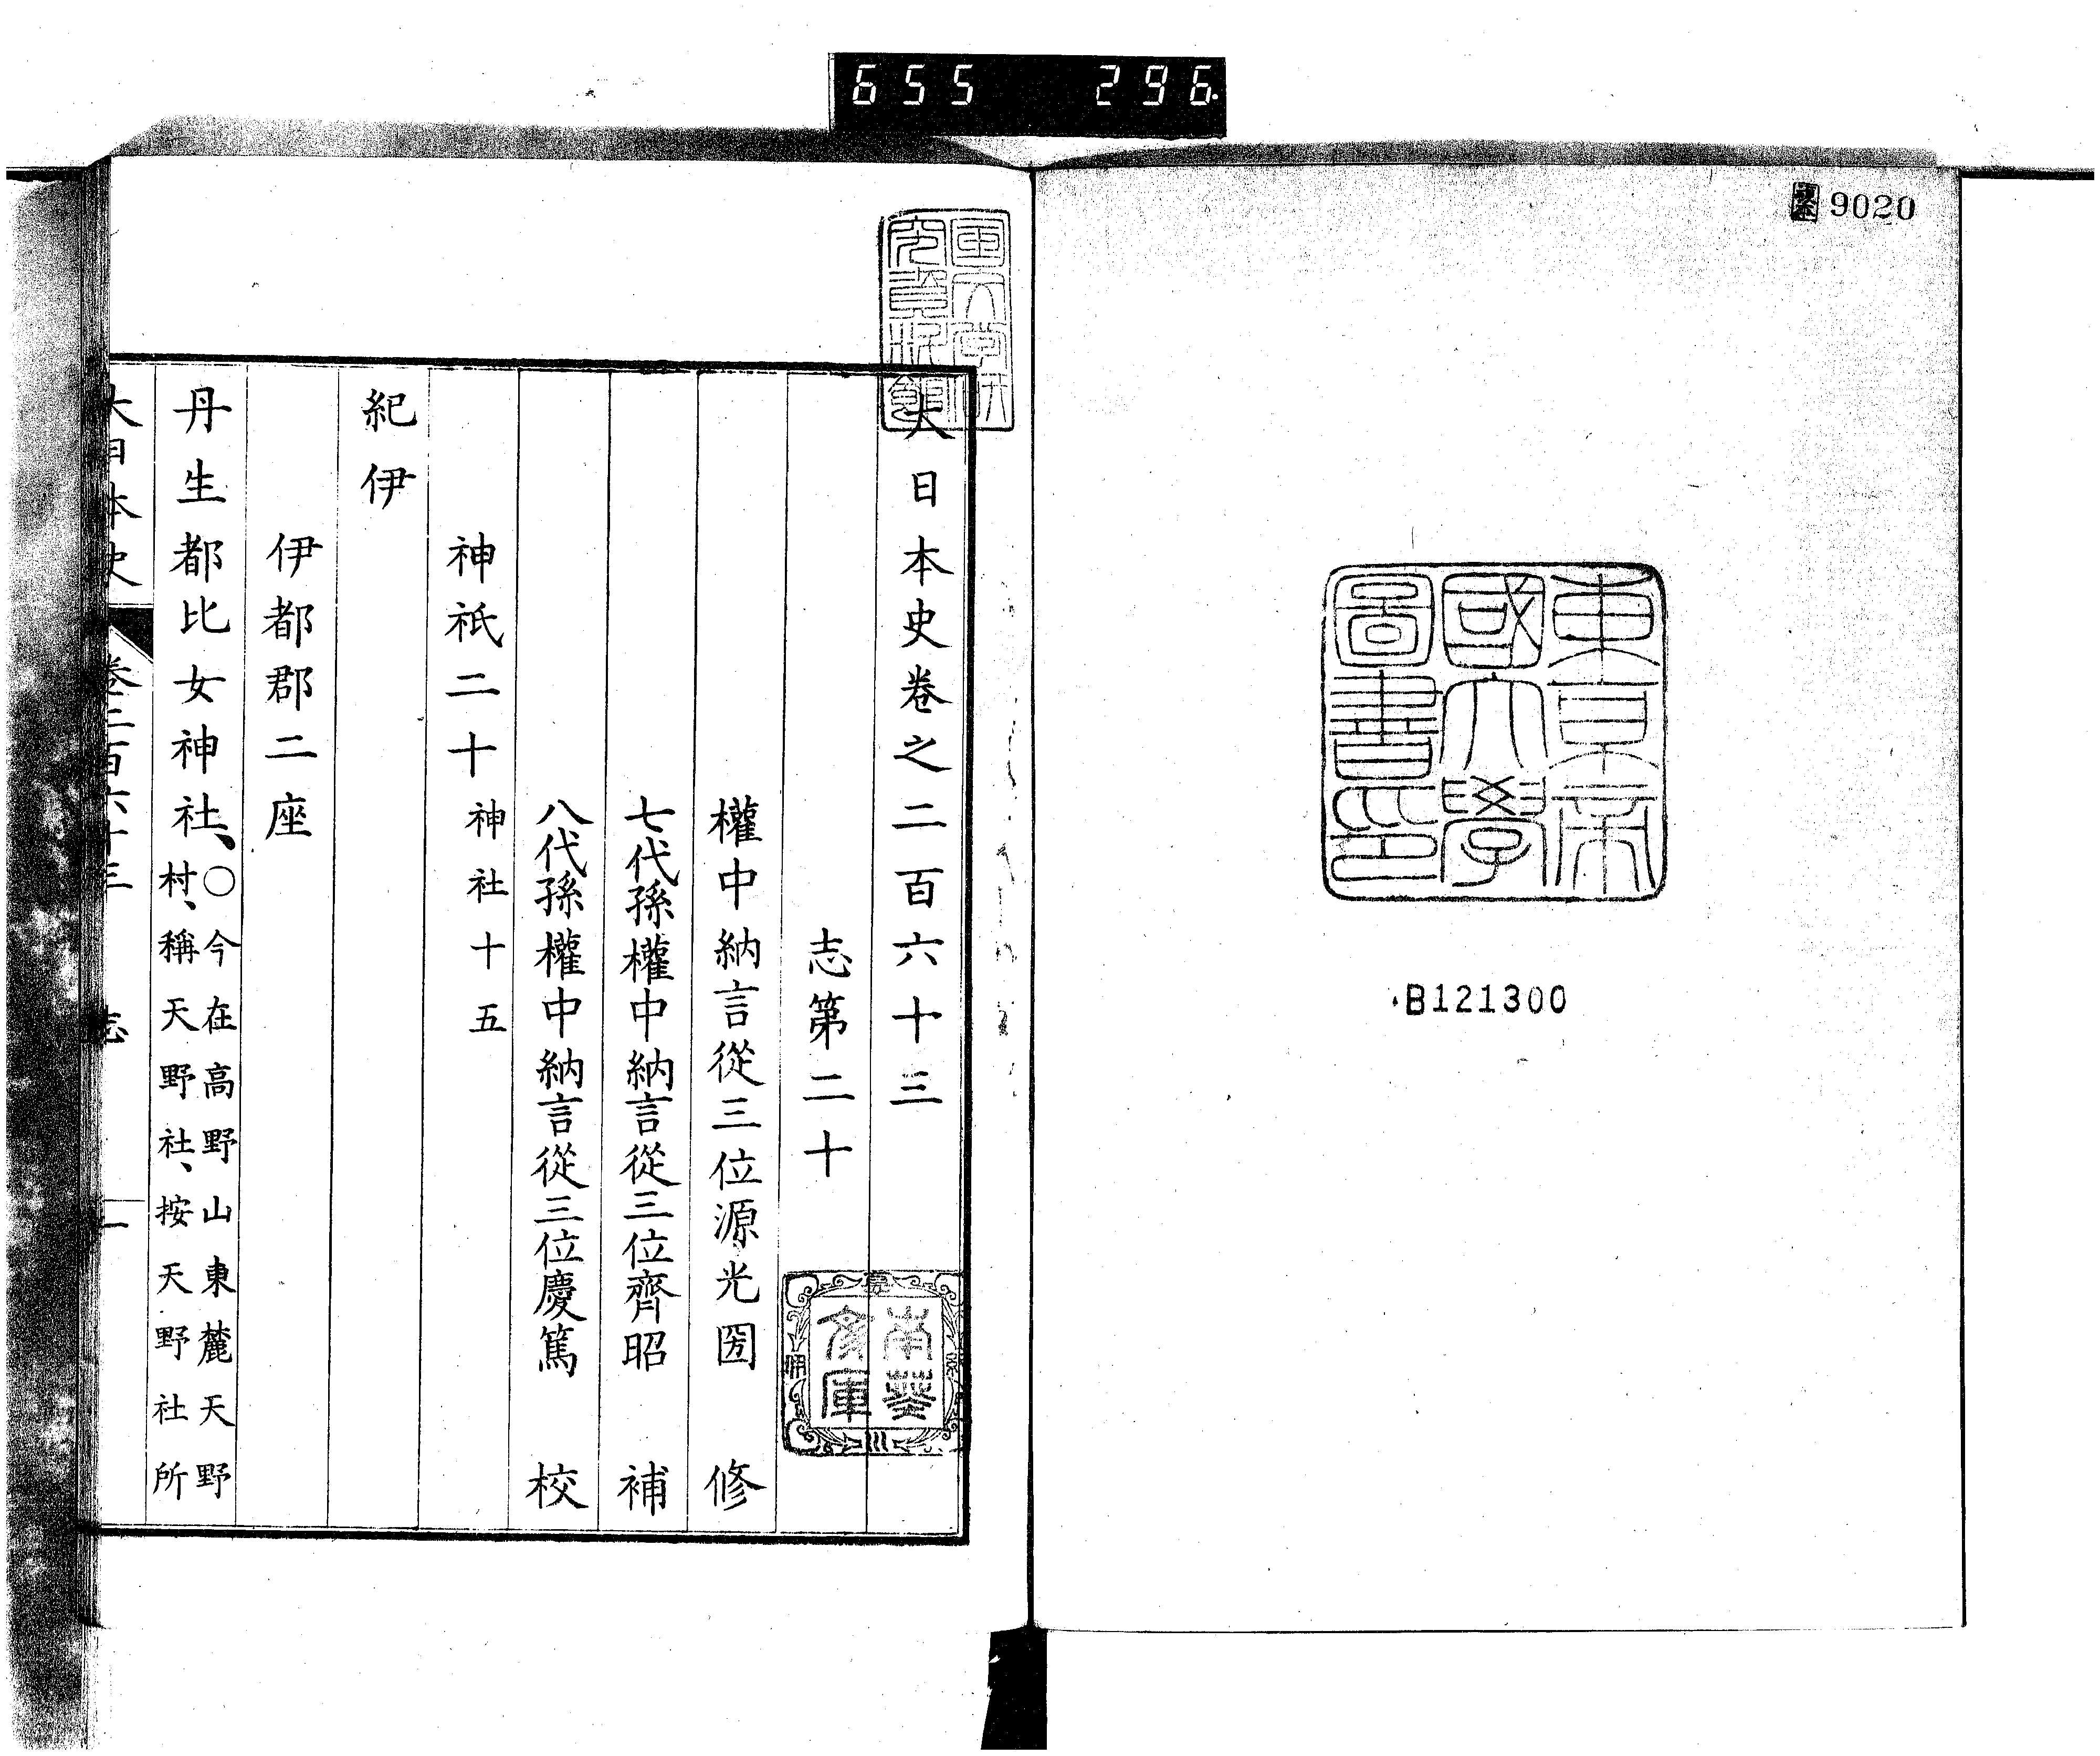 655 296
9020
東京帝
國大學
圖書印
B121300
大日本史卷之二百六十三
志第二十
權中納言從三位源光圀 修
七代孫權中納言從三位齊昭 補
八代孫權中納言從三位慶篤 校
神祇二十 神社十五
紀伊
伊都郡二座
丹生都比女神社、○今在高野山東麓天野
村、稱天野社、按天野社所
大日本史 卷二百六十三 志 一
南葵
文庫